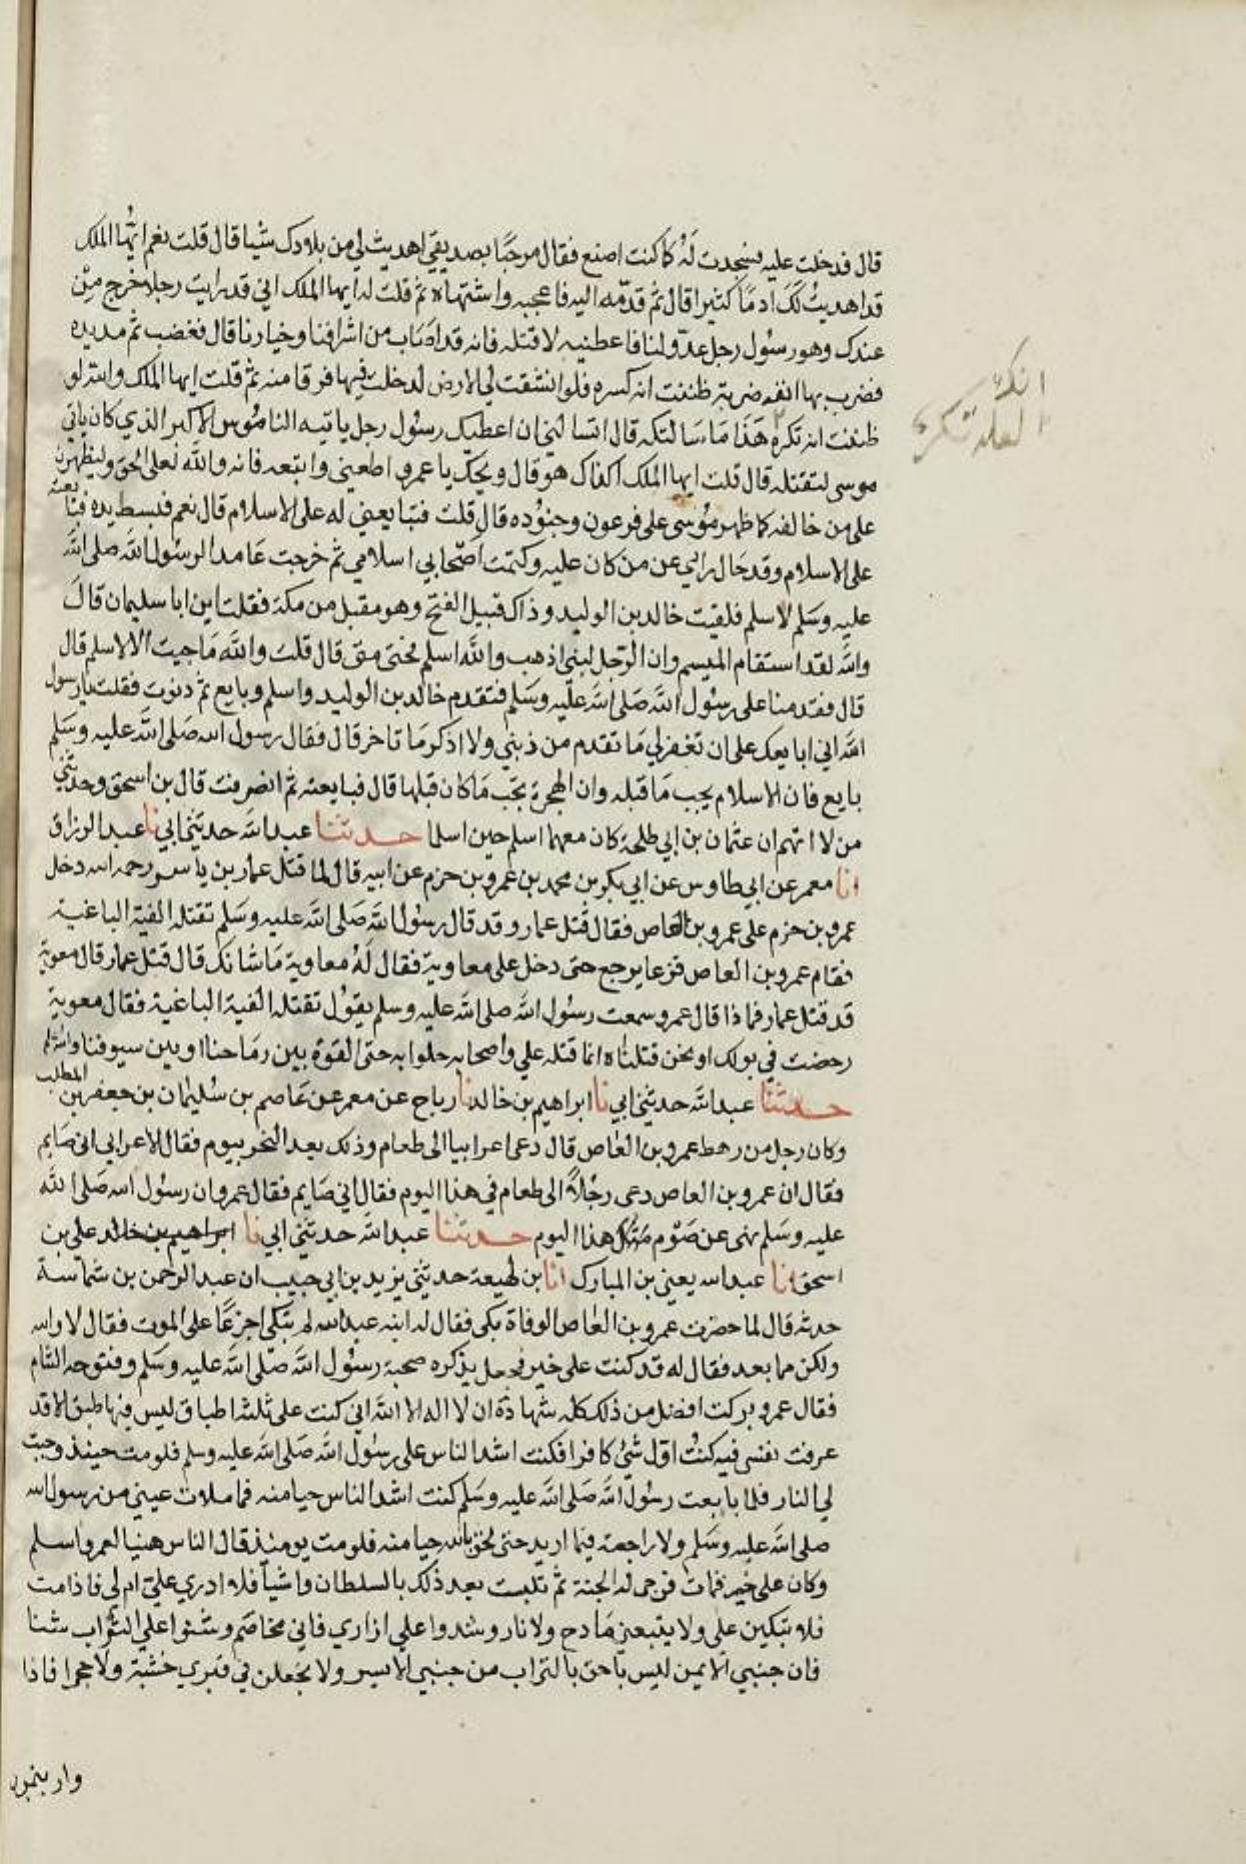 قال فدخلت عليه فسجدت له كما كنت اصنع فقال مرحبا بصديقي اهديت لي من بلادك شيا قال قلت نعم ايها الملك
قد اهديت لك ادما كثيرا قال ثم قدمه اليه فاعجبه واشتهاه ثم قلت له ايها الملك اني قد رايت رجلا خرج من
عندك وهو رسول رجل عدو لنا فاعطنيه لاقتله فانه قد اصاب من اشرافنا وخيارنا قال فغضب ثم مد يده
فضرب بها انفه ضربة ظننت انه كسره فلو انشقت لي الارض لدخلت فيها فرقا منه ثم قلت ايها الملك والله لو
ظننت انه تكره هذا ما سالتكه قال اتسالني ان اعطيك رسول رجل ياتيه الناموس الاكبر الذي كان ياتي
انك
لعله تكره
موسى لتقتله قال قلت ايها الملك اكذاك هو قال ويحك يا عمرو اطعني واتبعه فانه والله لعلى الحق وليظهرن
على من خالفه كما ظهر موسى على فرعون وجنوده قال قلت فتبايعني له على الاسلام قال نعم فبسط يده فبايعته
على الاسلام وقد حال رايي عن من كان عليه وكتمت اصحابي اسلامي ثم خرجت عامدا لرسول الله صلى الله
عليه وسلم لاسلم فلقيت خالد بن الوليد وذاك قبيل الفتح وهو مقبل من مكة فقلت اين ابا سليمان قال
والله لقد استقام الميسم وان الرجل لبني اذهب والله اسلم فحتى متى قال قلت والله ما جيت الا لاسلم قال
قال فقدمنا على رسول الله صلى الله عليه وسلم فتقدم خالد بن الوليد واسلم وبايع ثم دنوت فقلت يا رسول
الله اني ابايعك على ان تغفر لي ما تقدم من ذنبي ولا اذكر ما تاخر قال فقال رسول الله صلى الله عليه وسلم
بايع فان الاسلام يجب ما قبله وان الهجرة تجب ما كان قبلها قال فبايعته ثم انصرفت قال بن اسحق وحدثني
من لا اتهم ان عثمان بن ابي طلحة كان معهما اسلم حين اسلما حدثنا عبد الله حدثني ابي نا عبد الرزاق
انا معمر عن ابي طاوس عن ابي بكر بن محمد بن عمرو بن حزم عن ابيه قال لما قتل عمار بن ياسر رحمه الله دخل
عمرو بن حزم على عمرو بن العاص فقال قتل عمار وقد قال رسول الله صلى الله عليه وسلم تقتله الفية الباغية
فقام عمرو بن العاص فزعا يرجع حتى دخل على معاوية فقال له معاوية ما شانك قال قتل عمار قال معوية
قد قتل عمار فماذا قال عمرو سمعت رسول الله صلى الله عليه وسلم يقول تقتله الفية الباغية فقال معوية
رحضت في بولك اونحن قتلناه انما قتله علي واصحابه جاوا به حتى القوه بين رماحنا او بين سيوفنا
حدثنا عبد الله حدثني ابي نا ابراهيم بن خالد نا رباح عن معمر عن عاصم بن سليمان بن جعفر بن المطلب
وكان رجل من رهط عمرو بن العاص قال دعى اعرابيا الى طعام وذلك بعد النحر بيوم فقال الاعرابي اني صايم
فقال ان عمرو بن العاص دعى رجلا الى طعام في هذا اليوم فقال اني صايم فقال عمرو ان رسول الله صلى الله
عليه وسلم نهى عن صوم هذا اليوم حدثنا عبد الله حدثني ابي نا ابراهيم بن خالد علي بن
اسحق انا عبد الله يعني بن المبارك انا بن لهيعة حدثني يزيد بن ابي حبيب ان عبد الرحمن بن شماسة
حدثه قال لما حضرت عمرو بن العاص الوفاة بكى فقال له ابنه عبد الله لم تبكي اجزعا على الموت فقال لا والله
ولكن مما بعد فقال له قد كنت على خير فجعل يذكره صحبة رسول الله صلى الله عليه وسلم وفتوحه الشام
فقال عمرو تركت افضل من ذلك كله شهادة ان لا اله الا الله اني كنت على ثلثة اطباق ليس فيها طبق الا قد
عرفت نفسي فيه كنت اول شي كافرا فكنت اشد الناس على رسول الله صلى الله عليه وسلم فلو مت حينئذ وجبت
لي النار فلما بايعت رسول الله صلى الله عليه وسلم كنت اشد الناس حيا منه فما ملات عيني من رسول الله
صلى الله عليه وسلم ولا راجعته فيما اريد حتى لحق بالله حيا منه فلو مت يومئذ قال الناس هنيا لعمرو اسلم
وكان على خير فمات فرجي له الجنة ثم تلبست بعد ذلك بالسلطان واشيا فلا ادري علي ام لي فاذا مت
فلا تبكين علي ولا يتبعني مادح ولا نار وشدوا علي ازاري فاني مخاصم وشنوا علي التراب شنا
فان جنبي الايمن ليس باحق بالتراب من جنبي الايسر ولا تجعلن في قبري خشبة ولا حجرا فاذا
واريتموني